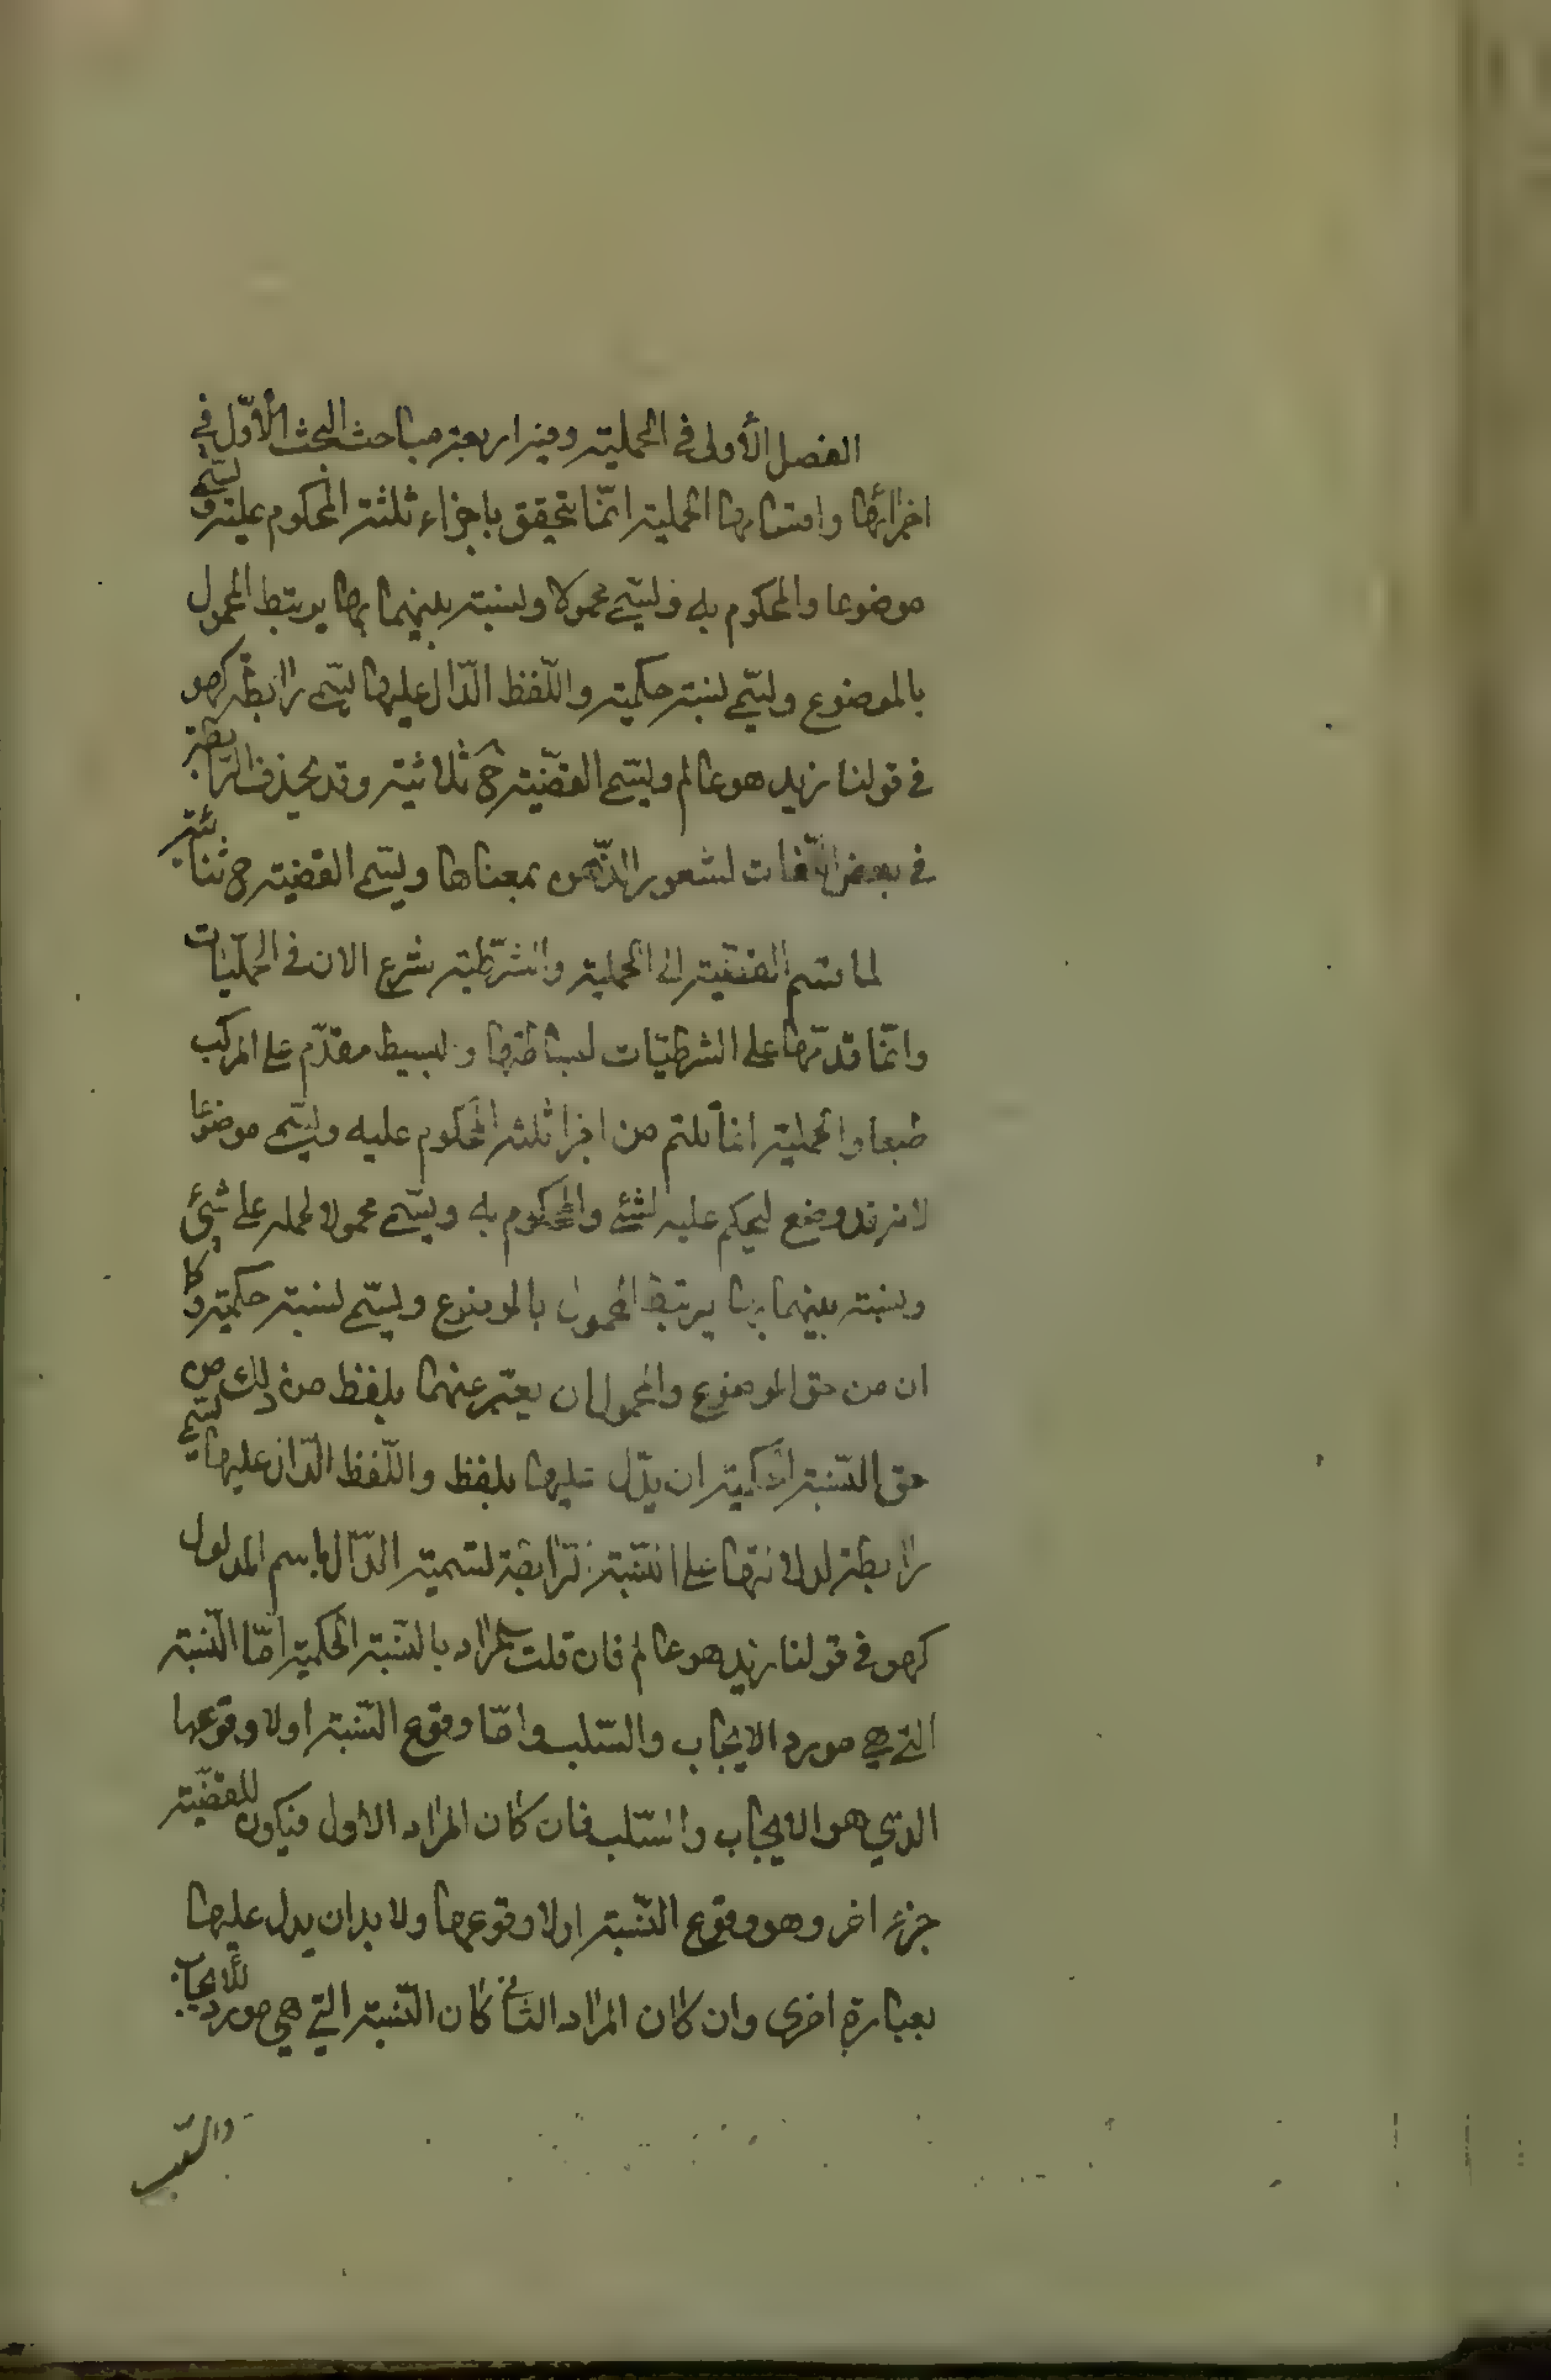 الفصل الأولى في الحملية وفيه اربعة مباحث البحث الأوّل في
اجزائها واقسامها الحملية انّما يتحقق باجزاء ثلثة المحكوم عليه ويسمّى
موضوعا والمحكوم به ويسمّى محمولا ونسبة بينهما بها يرتبط المحمول
بالموضوع ويسمّى نسبة حكمية واللّفظ الدّال عليها يسمّى رابطة كهو
في قولنا زيد هو عالم ويسمّى القضيّة ح ثلاثية وقد يحذف الرّابطة
في بعض اللّغات لشعور الذّهن بمعناها ويسمّى القضية ح ثنائية
لما قسم القضيّة الى الحملية والشّرطية شرع الان في الحمليّات
وانّما قدّمها على الشرطيّات لبساطتها والبسيط مقدّم على المركب
طبعا والحملية انما يلتم من اجزا ثلثة المحكوم عليه ويسمّى موضوعا
لانه قد وضع ليحكم عليه لشئ والمحكوم به ويسمّى محمولا لحمله على شئ
ونسبة بينهما بها يرتبط المحمول بالموضوع ويسمّى نسبة حكمية وكا
ان من حق الموضوع والمحمول ان يعبّر عنهما بلفظ من ذلك من
حق النّسبة الحكمية ان يدّل عليها بلفظ واللّفظ الدّال عليها يسمّى
رابطة لدلالتها على النّسبة الرّابطة لتسمية الدّال باسم المدلول
كهو في قولنا زيد هو عالم فان قلت المراد بالنّسبة الحكمية امّا النّسبة
التي هي مورد الايجاب والسّلب وامّا وقوع النّسبة او لا وقوعها
الذي هو الايجاب والسّلب فان كان المراد الاول فيكون للقضيّة
جزء اخر وهو وقوع النّسبة او لا وقوعها ولا بد ان يدل عليها
بعبارة اخرى وان كان المراد الثّاني كان النّسبة التي هي مورد للأيجاب
والسّلب